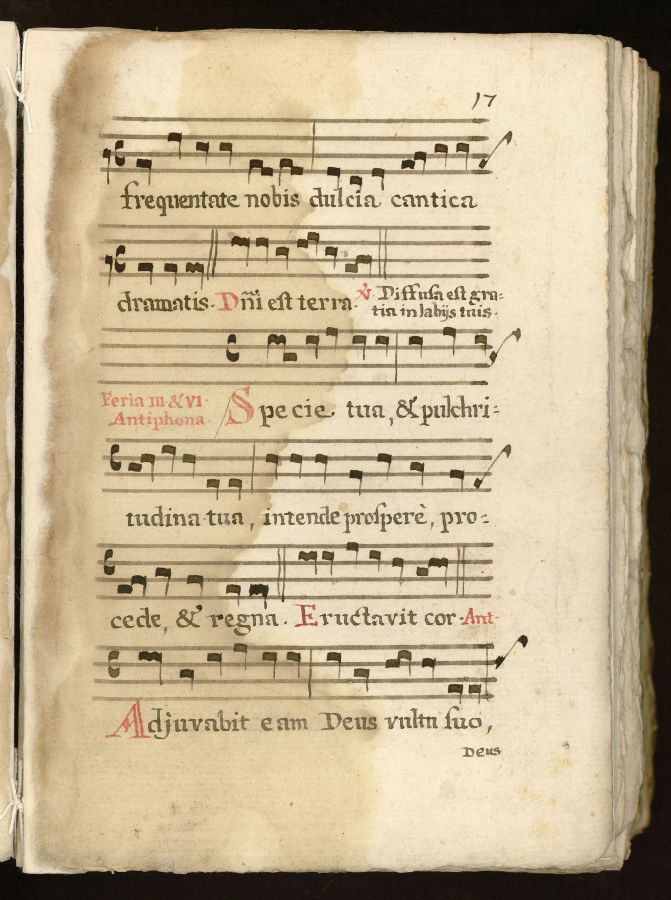 17
frequentate nobis dulcia cantica
dramatis. Dn̄i est terra. ℣. Diffusa est gra=
tia in labijs tuis.
Feria III & VI.
Antiphona.
Specie tua, & pulchri=
tudina tua, intende prosperè, pro=
cede, & regna. Eructavit cor. Ant.
Adjuvabit eam Deus vultu suo,
Deus